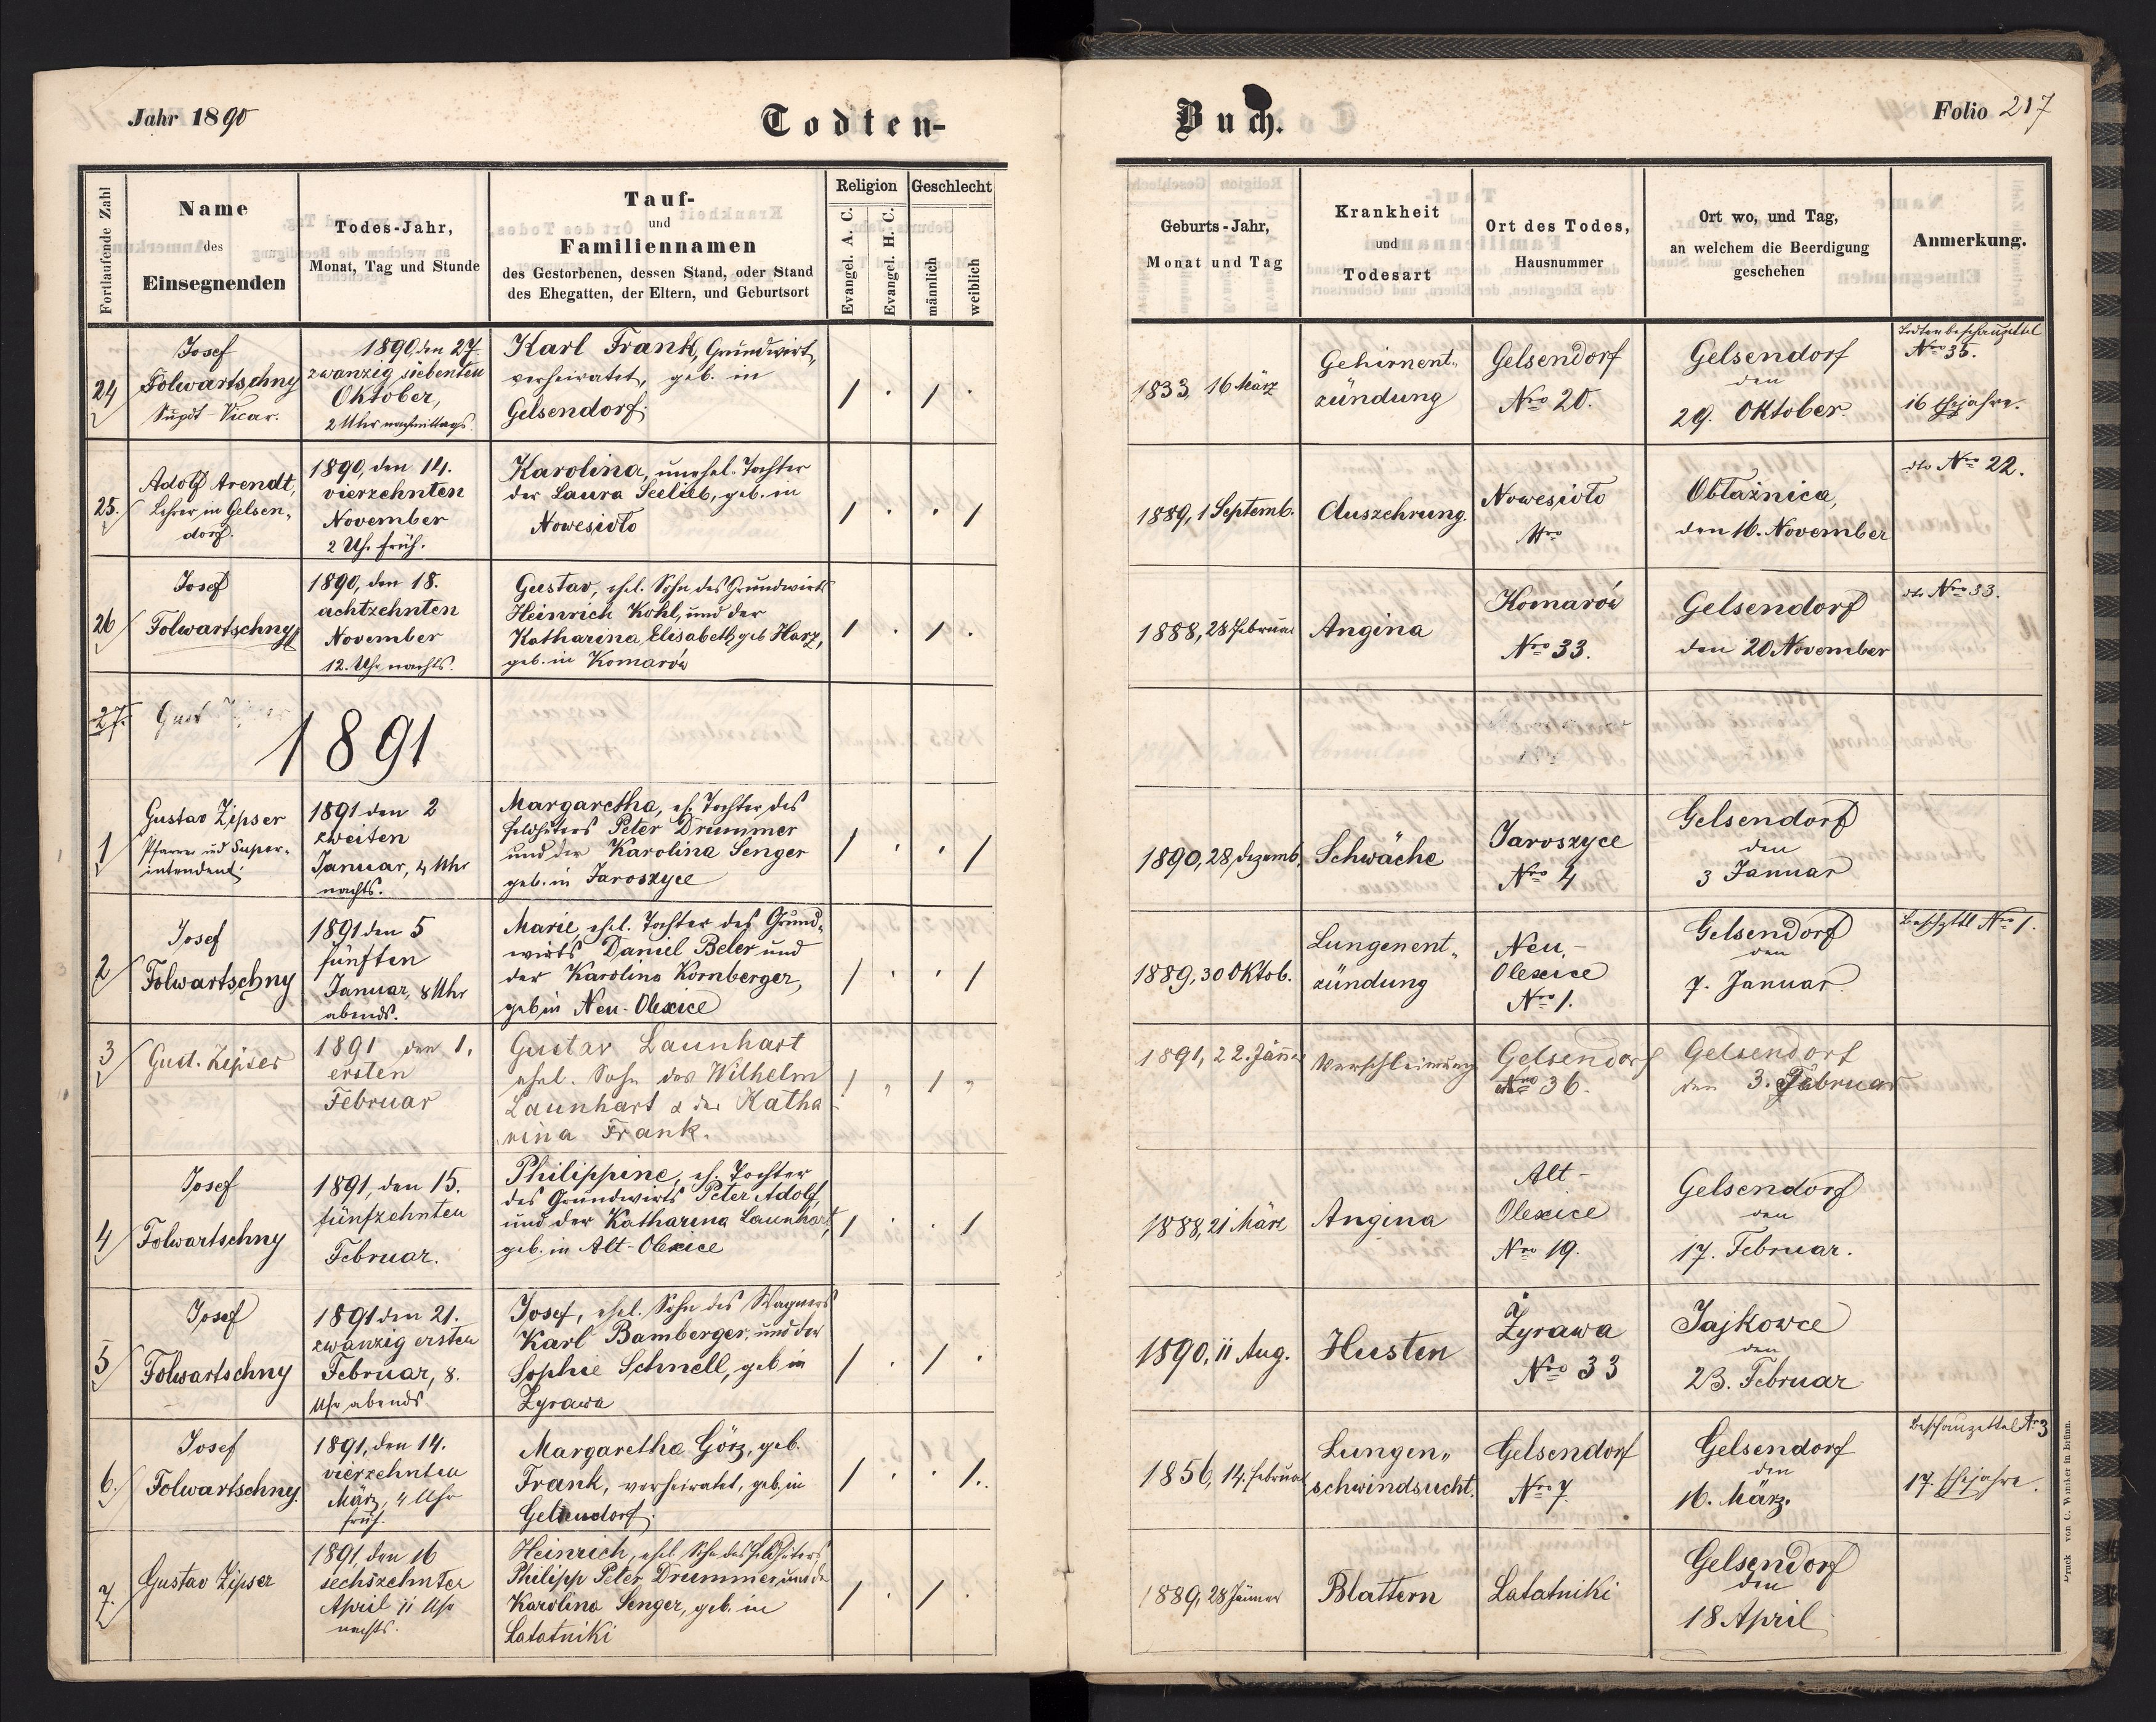 Jahr 1890
Todten-
Fortlaufende Zahl
Name
des
Einsegnenden
Todes-Jahr,
Monat, Tag und Stunde
Tauf-
und
Familiennamen
des Gestorbenen, dessen Stand, oder Stand
des Ehegatten, der Eltern, und Geburtsort
Religion
Evangel. A. C.
Evangel. H. C.
Geschlecht
männlich
weiblich
24
Josef
Folwartschny
Supdt-Vicar.
1890, den 27.
zwanzig siebenten
Oktober,
2 Uhr nachmittags.
Karl Frank, Grundwirt,
verheiratet, geb. in
Gelsendorf.
/ . / .
25.
Adolf Arendt,
Lehrer in Gelsen-
dorf.
1890, den 14.
vierzehnten
November
2 Uhr früh.
Karolina, unehel. Tochter
der Laura Seelieb, geb. in
Nowesioło
/ . . /
26
Josef
Folwartschny
1890, den 18.
achtzehnten
November
12. Uhr nachts.
Gustav, ehel. Sohn des Grundwirts
Heinrich Kohl, und der
Katharina Elisabeth geb Harz,
geb. in Komarów
/ . / .
27.
Gust
1891
1
Gustav Zipser
Pfarrer und Super-
intendent.
1891 den 2
zweiten
Januar, 4 Uhr
nachts.
Margaretha, eh. Tochter des
Feldhüters Peter Drummer
und der Karolina Senger
geb. in Jaroszyce
/ . . /
2
Josef
Folwartschny
1891 den 5
fünften
Januar, 8 Uhr
abends.
Marie, ehel. Tochter des Grund-
wirts Daniel Beler und
der Karolina Kornberger,
geb in Neu-Olexice
/ . . /
3
Gust. Zipser
1891 den 1.
ersten
Februar
Gustav Launhart
ehel. Sohn des Wilhelm
Launhart & der Katha
rina Frank.
/ " / "
4
Josef
Folwartschny
1891, den 15.
fünfzehnten
Februar.
Philippine, eh. Tochter
des Grundwirts Peter Adolf,
und der Katharina Launhart,
geb. in Alt-Olexice
/ . . /
5
Josef
Folwartschny
1891 den 21.
zwanzig ersten
Februar, 8.
Uhr abends
Josef, ehel. Sohn des Wagners
Karl Bamberger, und der
Sophie Schnell, geb in
Zyrawa
/ . / .
6.
Josef
Folwartschny.
1891, den 14.
vierzehnten
März, 4 Uhr
früh.
Margaretha Görz, geb.
Frank, verheiratet, geb. in
Gelsendorf.
/ . . /.
7.
Gustav Zipser
1891, den 16
sechszehnten
April 11 Uhr
nachts.
Heinrich, ehel. Sohn des Feldhüters
Philipp Peter Drummer und der
Karolina Senger, geb. in
Latatniki
/ . / .
Buch.
Folio 217
Geburts-Jahr,
Monat und Tag
Krankheit
und
Todesart
Ort des Todes,
Hausnummer
Ort wo, und Tag,
an welchem die Beerdigung
geschehen
Anmerkung.
1833, 16 März
Gehirnent-
zündung
Gelsendorf
Nro 20.
Gelsendorf
den
29. Oktober.
Todtenbeschauzettel
Nro 35.
16 Ehejahre.
1889, 1 Septemb.
Auszehrung.
Nowesioło
Nro
Obłaźnica,
den 16. November
dto Nro 22.
1888, 28 Februar
Angina
Komarów
Nro 33.
Gelsendorf
den 20 November
dto Nro 33.
1890, 28, dezemb.
Schwäche
Jaroszyce
Nro 4
Gelsendorf
den
3 Januar
1889, 30 Oktob.
Lungenent-
zündung
Neu-
Olexice
Nro 1.
Gelsendorf
den
7. Januar.
Beschzttl Nro 1.
1891, 22. Jänner
Verschleimung
Gelsendorf
Nro 36.
Gelsendorf
den 3. Februar
1888, 21 März
Angina
Alt-
Olexice
Nro 19.
Gelsendorf
den
17. Februar.
1890, 11 Aug.
Husten
Zyrawa
Nro 33
Jajkowce
den
23. Februar
1856, 14. Februar
Lungen-
schwindsucht.
Gelsendorf
Nro 7
Gelsendorf
den
16. März.
Beschauzettel Nr 3
17. Ehejahre.
1889, 28 Jänner
Blattern
Latatniki
Gelsendorf
den
18 April
Druck von C. Winiker in Brünn.